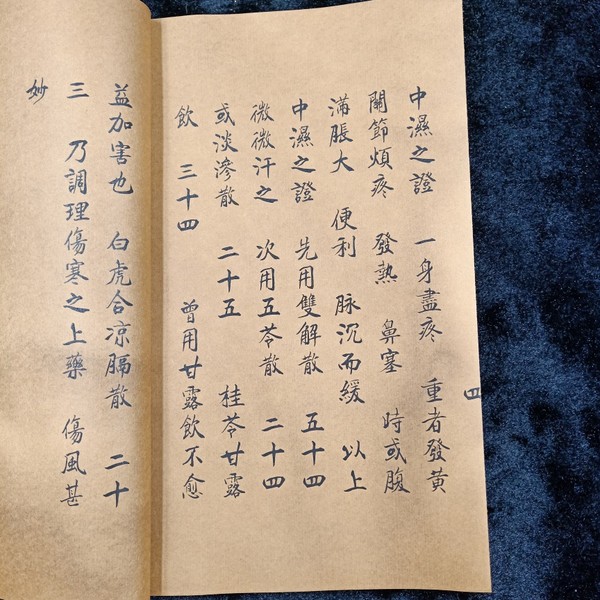 中濕之證 一身盡疼 重者發黃
關節煩疼 發熱 鼻塞 時或腹
滿脹大 便利 脉沉而緩 以上
中濕之證 先用雙解散 五十四
微微汗之 次用五苓散 二十四
或淡滲散 二十五 桂苓甘露
飲 三十四 曾用甘露飲不愈
益加害也 白虎合涼膈散 二十
三 乃調理傷寒之上藥 傷風甚
妙
四